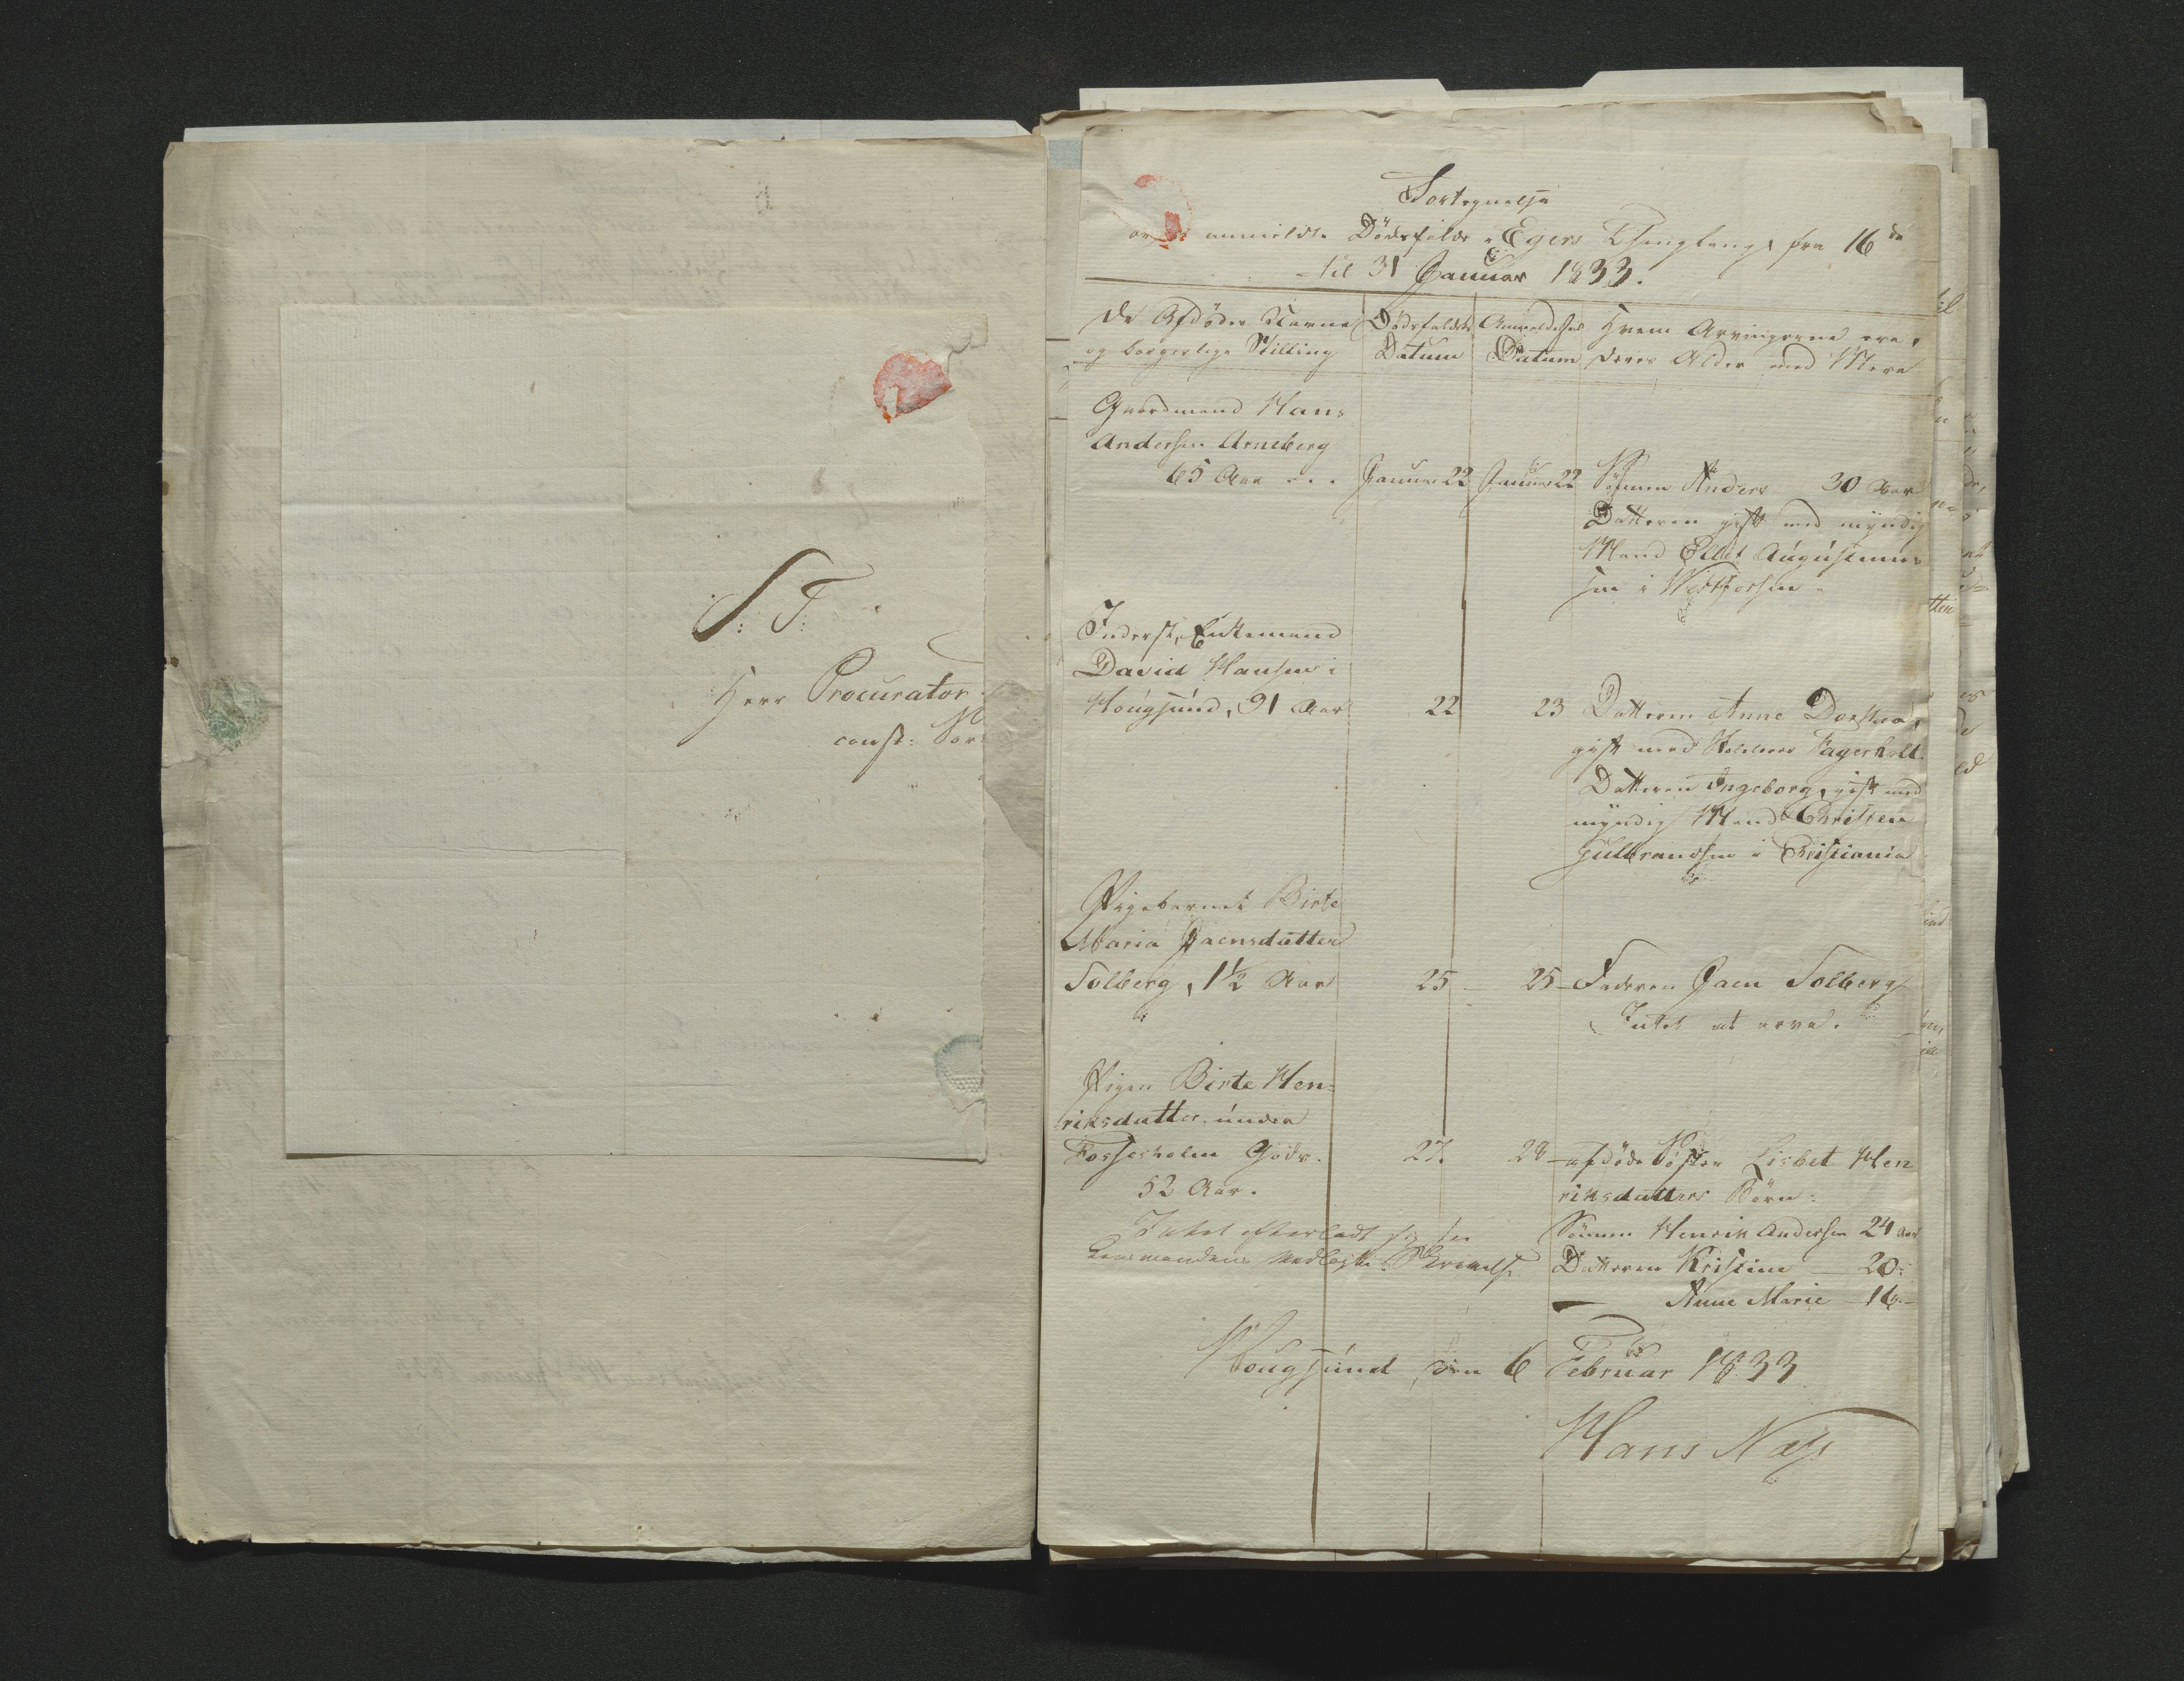 S: T:
Herr Procurator
const: Sor
Fortegnelse
over anmeldte Dødsfalde i Egers Thinglaug fra 16de
til 31 Januar 1833.
De Afdødes Navne
og borgerlige Stilling
Dødsfaldets
Datum
Anmeldelsens
Datum
Hvem Arvingerne ere,
deres Alder med Mere
Gaardmand Hans
Andersen Arneberg
65 Aar ... Januar 22 Januar 22 Sønnen Anders 30 Aar
Datteren gift med myndig
Mand Ellef Augustinus-
sen i Westfossen
Inderst, Enkemand
David Hansen i
Hougsund, 91 Aar 22 23 Datteren Anne Dorthea,
gift med Fagerholt.
Datteren Ingeborg, gift med
myndig Mand Christen
Gulbrandsen i Christiania
Pigebarnet Birte
Maria Jaensdatter
Solberg, 1½ Aar 25 - 25 - Faderen Jaen Solberg
Intet at arve.
Pigen Birte Hen=
riksdatter under
Fossesholm Gods. 27. 28 - afdøde Søster Lisbet Hen
52 Aar. riksdatters Børn:
Intet efterladt
Lensmandens vedlagte Skrivelse
Sønnen Henrik Andersen 24 Aar
Datteren Kristine 20
— Anne Marie 16 -
Hougsund den 6 Februar 1833
Hans Næss